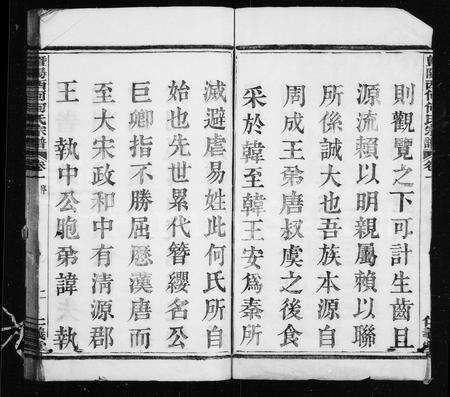 則觀覽之下可計生齒且
源流賴以明親屬賴以聯
所係誠大也吾族本源自
周成王弟唐叔虞之後食
采於韓至韓王安爲秦所
滅避虐易姓此何氏所自
始也先世累代簪纓名公
巨卿指不勝屈歷漢唐而
至大宋政和中有清源郡
王 執中公胞弟諱 執